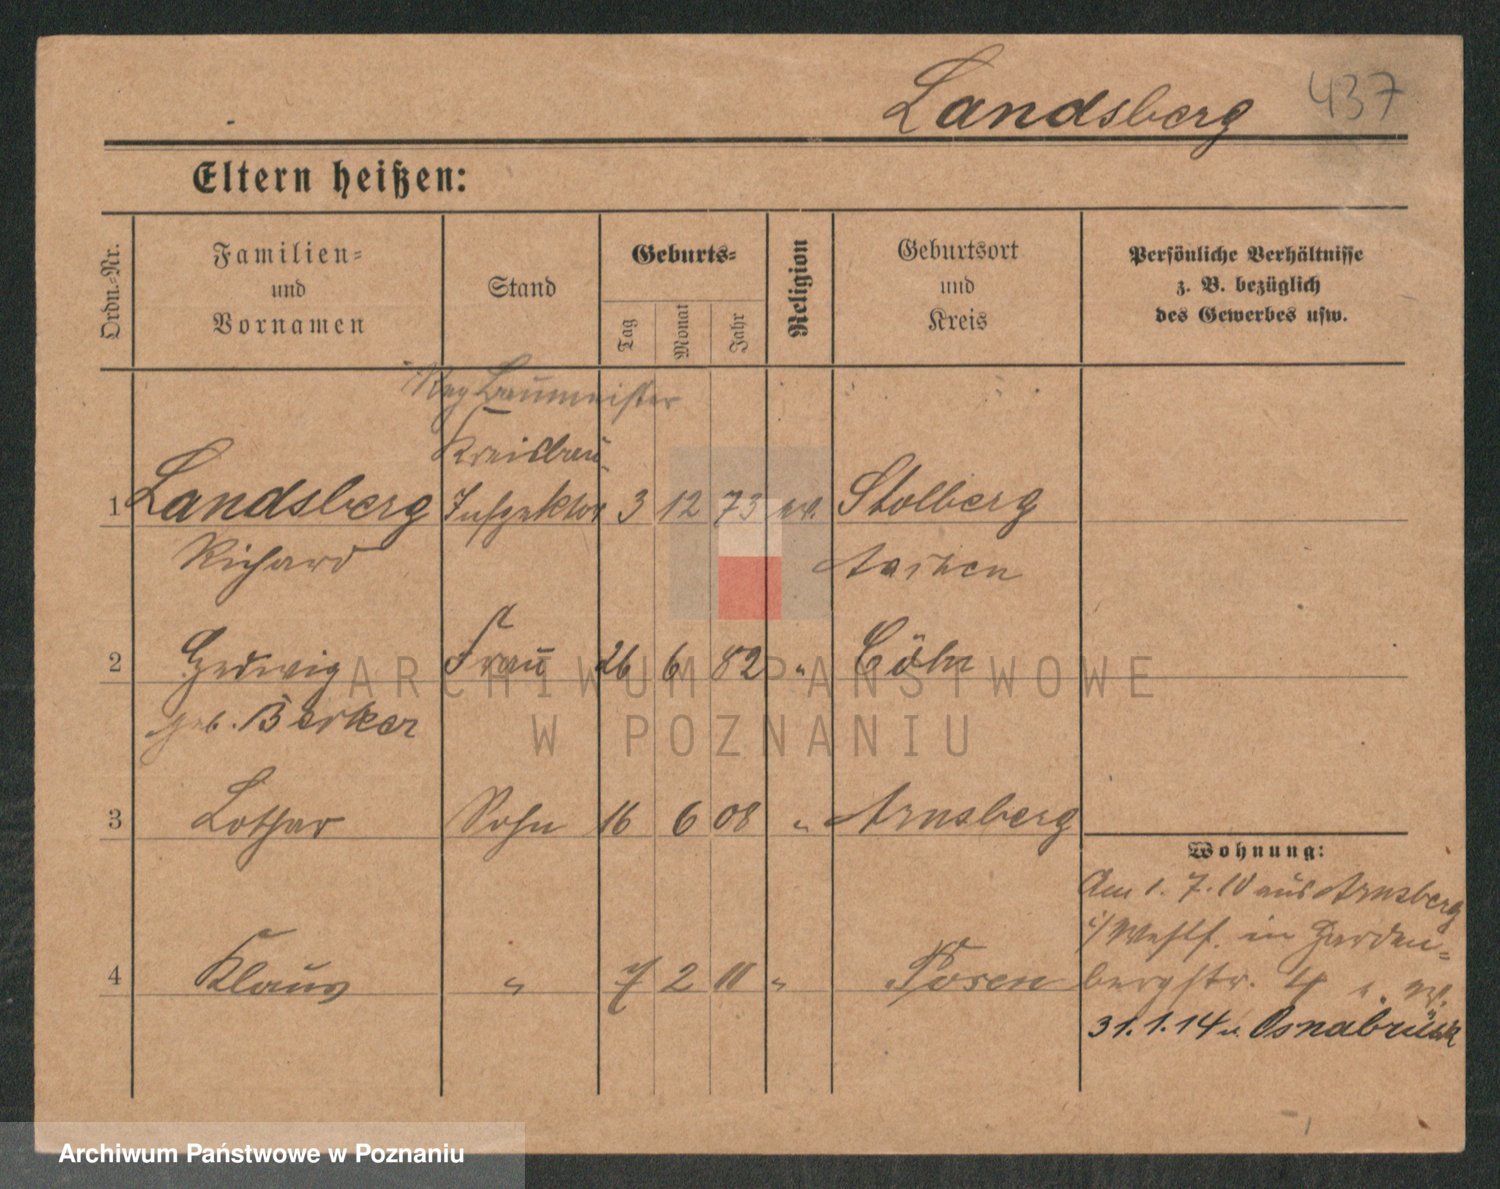 Landsberg 437
Eltern heißen:
Ordn.-Nr.
Familien-
und
Vornamen
Stand
Geburts-
Tag
Monat
Jahr
Religion
Geburtsort
und
Kreis
Persönliche Verhältnisse
z. B. bezüglich
des Gewerbes usw.
Reg Baumeister
Kreisbau-
1 Landsberg Inspektor 3 12 73 ev. Stolberg
Richard Aachen
2 Hedwig Frau 26 6 82 " Cöln
geb. Berker
3 Lothar Sohn 16 6 08 " Arnsberg
Wohnung:
Am 1. 7. 10 aus Arnsberg
i/Westf. in Harden-
4 Klaus " 7 2 11 " Posen
bergstr. 4
31.1.14 n. Osnabrück
ARCHIWUM PAŃSTWOWE
W POZNANIU
Archiwum Państwowe w Poznaniu